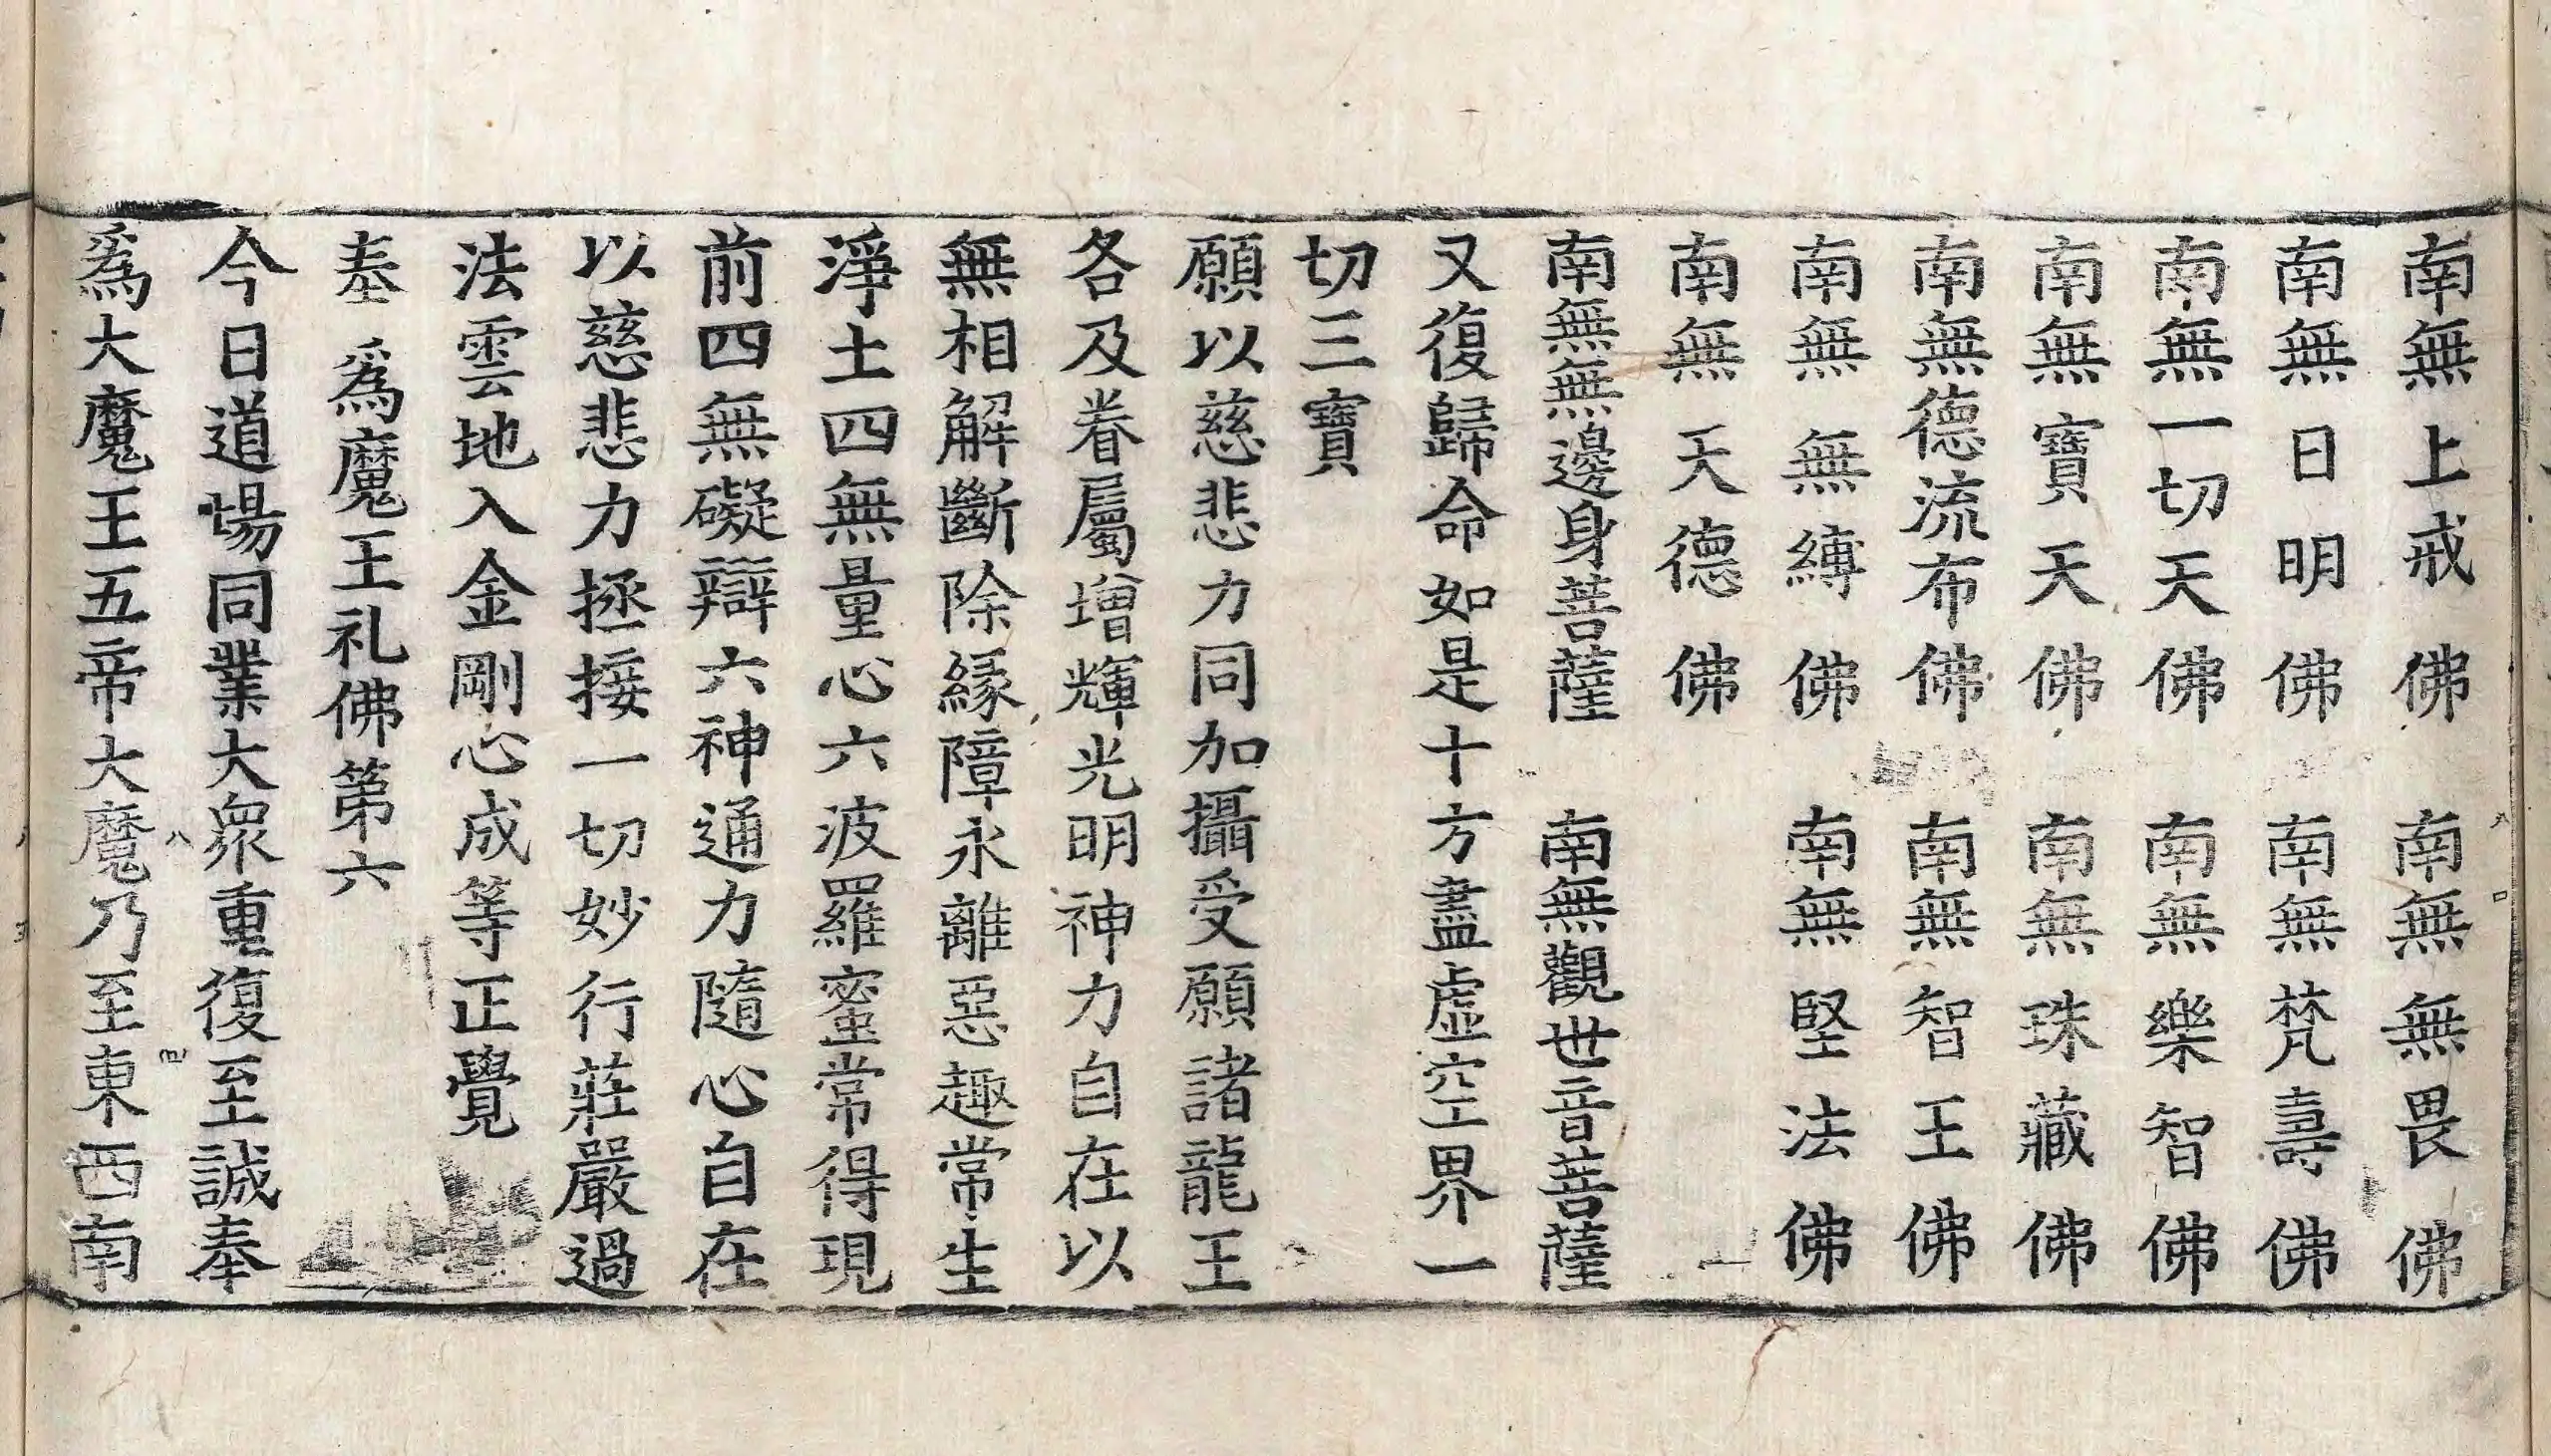 南無上戒佛　南無無畏佛
南無日明佛　南無梵壽佛
南無一切天佛　南無樂智佛
南無寶天佛　南無珠藏佛
南無德流布佛　南無智王佛
南無無縛佛　南無堅法佛
南無天德佛
南無無邊身菩薩　南無觀世音菩薩
又復歸命如是十方盡虛空界一
切三寶
願以慈悲力同加攝受願諸龍王
各及眷屬增輝光明神力自在以
無相解斷除緣障永離惡趣常生
淨土四無量心六波羅蜜常得現
前四無礙辯六神通力隨心自在
以慈悲力拯接一切妙行莊嚴過
法雲地入金剛心成等正覺
奉　爲魔王礼佛第六
今日道場同業大眾重復至誠奉
爲大魔王五帝大魔乃至東西南